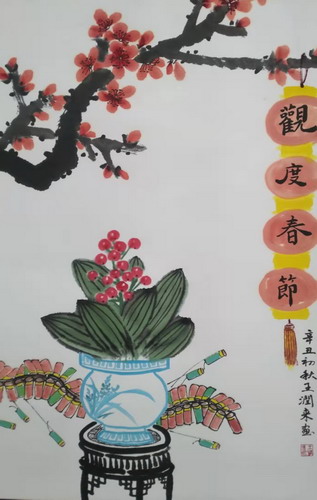 觀度春節
辛丑初秋王潤來画